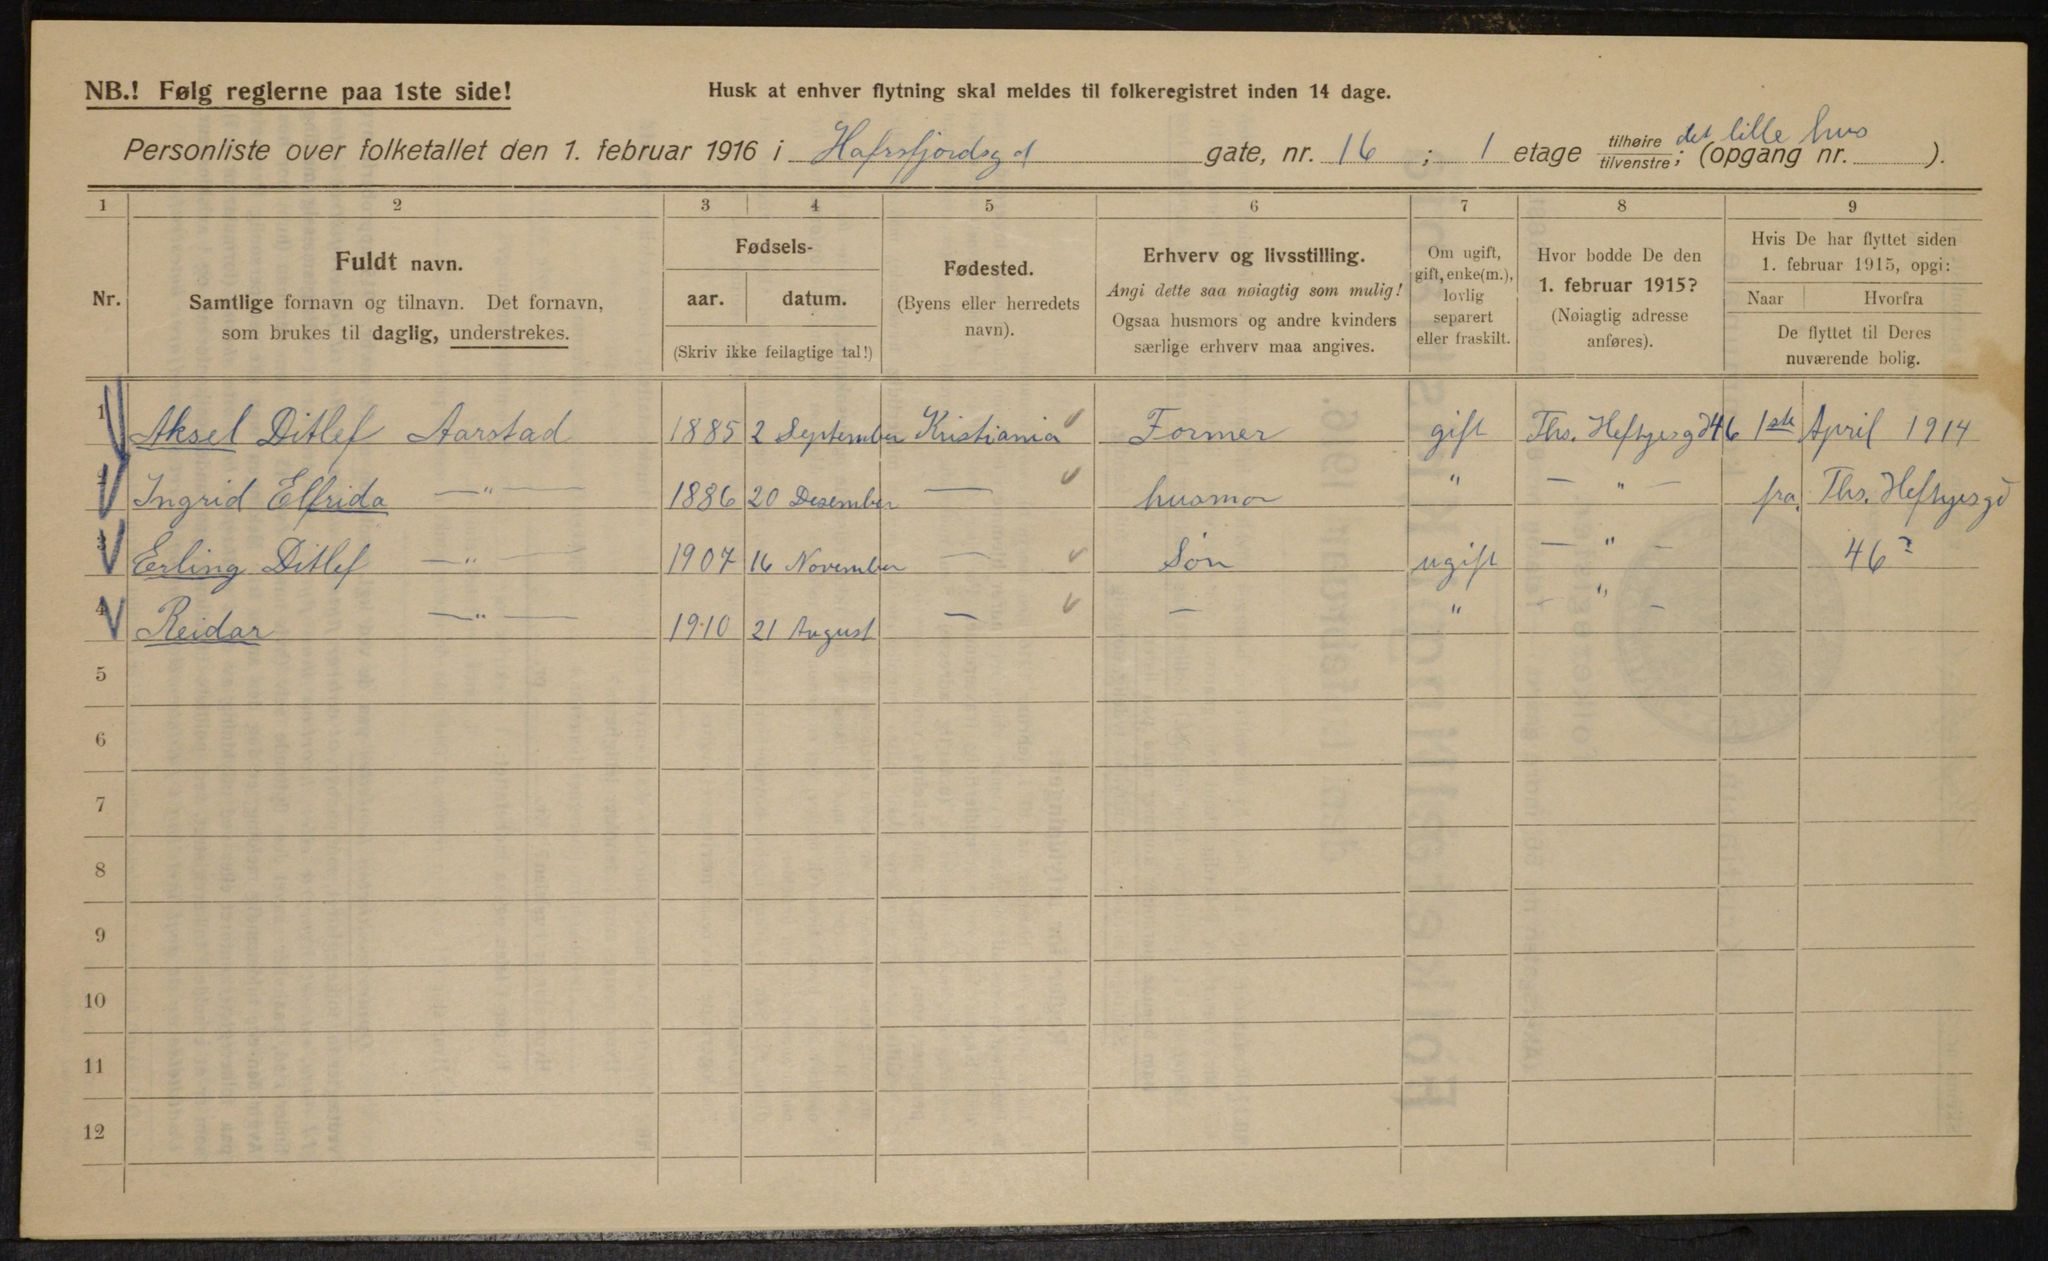 NB.! Følg reglerne paa 1ste side!
Husk at enhver flytning skal meldes til folkeregistret inden 14 dage.
Personliste over folketallet den 1. februar 1916 i Hafrsfjordsgd gate, nr. 16 ; 1 etage tilhøire tilvenstre; det lille hus (opgang nr. ).
1 2 3 4 5 6 7 8 9
Nr.
Fuldt navn.
Samtlige fornavn og tilnavn. Det fornavn,
som brukes til daglig, understrekes.
Fødsels-
aar. datum.
(Skriv ikke feilagtige tal!)
Fødested.
(Byens eller herredets
navn).
Erhverv og livsstilling.
Angi dette saa nøiagtig som mulig!
Ogsaa husmors og andre kvinders
særlige erhverv maa angives.
Om ugift,
gift, enke(m.),
lovlig
separert
eller fraskilt.
Hvor bodde De den
1. februar 1915?
(Nøiagtig adresse
anføres).
Hvis De har flyttet siden
1. februar 1915, opgi:
Naar Hvorfra
De flyttet til Deres
nuværende bolig.
1 Aksel Ditlef Aarstad 1885 2 September Kristiania Former gift Ths. Heftyesgd 46 1ste April 1914
2 Ingrid Elfrida —"— 1886 20 Desember — husmor " — " — fra. Ths. Heftyesgd
3 Erling Ditlef —"— 1907 16 November — Søn ugift — " — 46?
4 Reidar —"— 1910 21 August — — " — " —
5
6
7
8
9
10
11
12